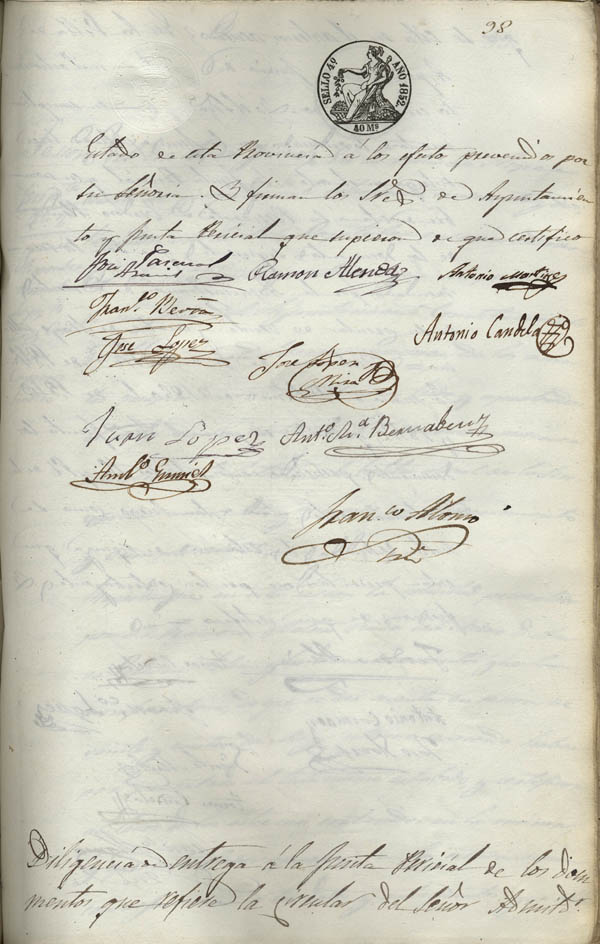 98
SELLO 4º AÑO 1852.
40 Ms
Estado de esta Provincia á los efectos prevenidos por
su Señoria. Y firman los Sres. de Ayuntamien
to y Junta Pericial que supieron de que certifico
Pascual
Ramon Mendez
Antonio Martinez
Franco
Jose Lopez
Antonio Candela
Jose Lopez
Mira
Juan Lopez
Anto. Ma. Bernabeu
Franco Alonso
Diligencia de entrega á la Junta Pericial de los docu
mentos que refiere la circular del Señor Admitdr.